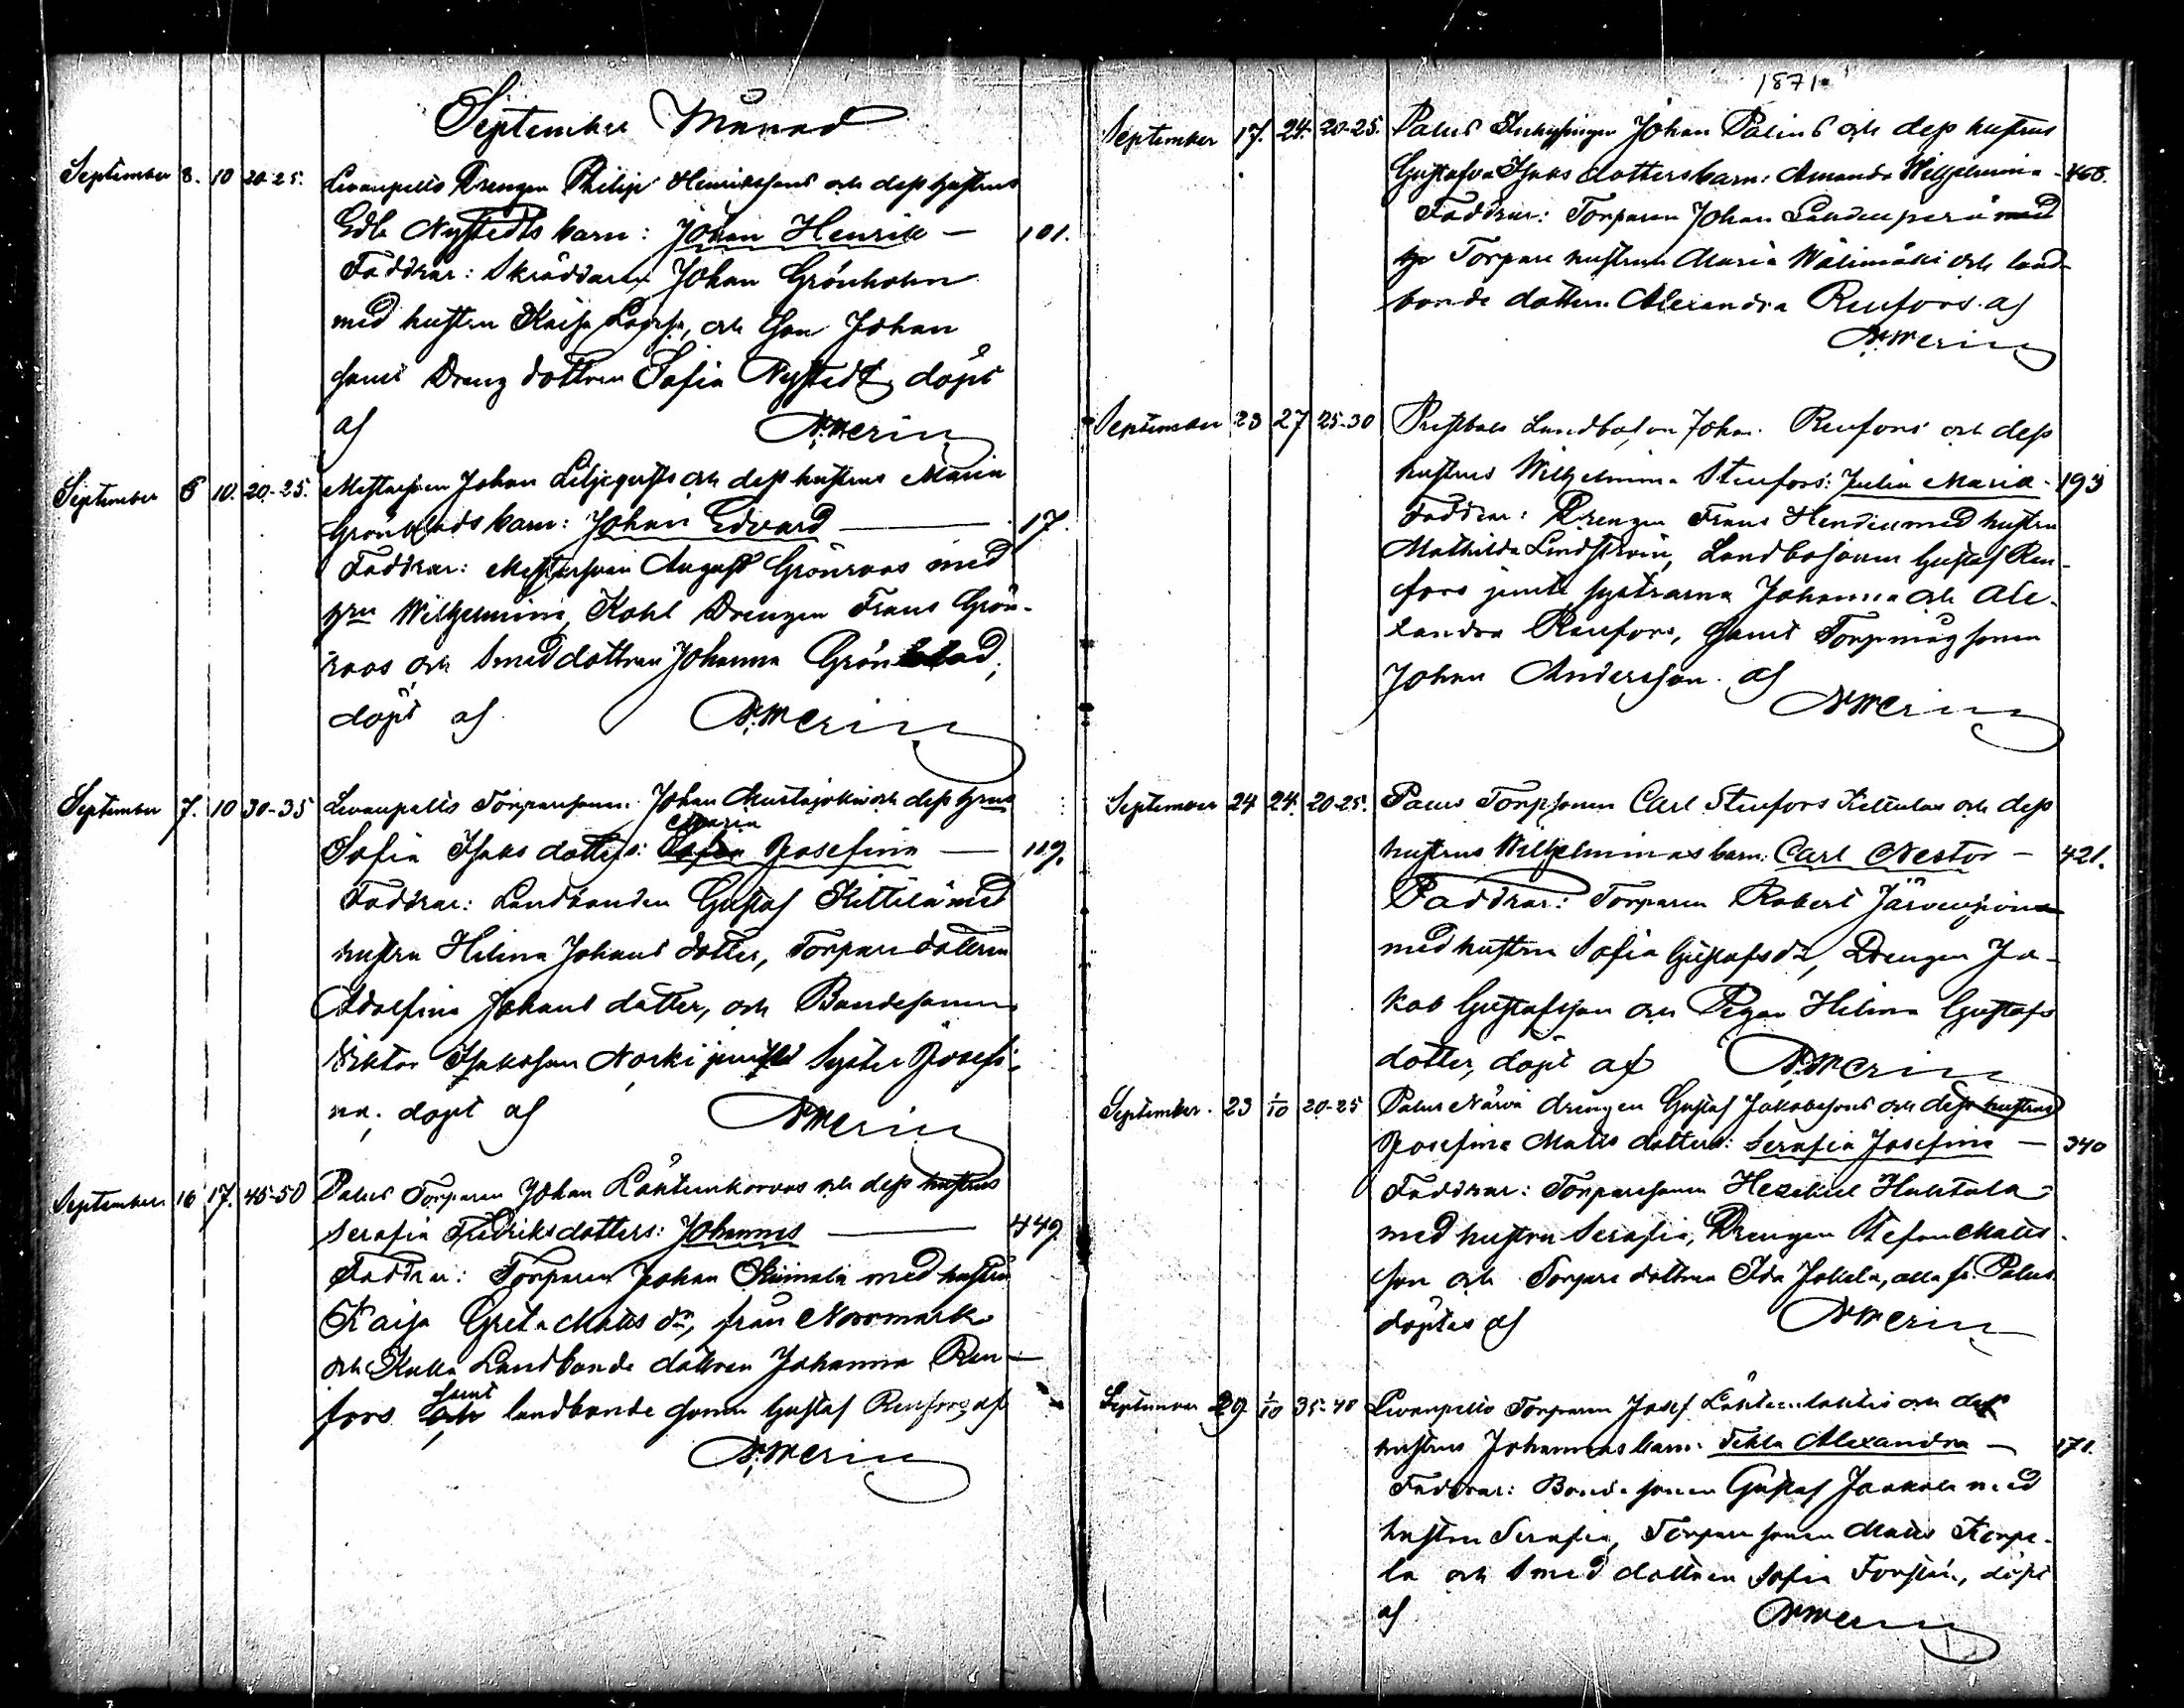 September Månad
September 8. 10 20-25. Levanpelto Drengen Philip Henrikssons och dess hustrus
Edla Nystedts barn: Johan Henrik — 101.
Faddrar: Skräddaren Johan Grönholm
med hustru Kaisa Lovisa, och Son Johan
samt Dreng dottren Sofia Nystedt, döpt
af N. Merin
September 6 10. 20-25. Johan Liljeqvists och dess hustrus Maria
Grönblads barn: Johan Edvard — 17.
Faddrar: August Grönroos med
hru Wilhelmina, Drengen Frans Grön-
roos och Smed dottren Johanna Grönblad,
döpt af N. Merin
September 7. 10 30-35 Levanpelto Torparsonen Johan Mustajoki och dess hrus
Maria
Sofia Isaks dotters: Josefina — 119.
Faddrar: Landbonden Gustaf Kittilä med
hustru Helena Johans dotter, Torpare dottren
Adolfina Johans dotter, och Bondesonen
Viktor Isaksson Norki jemte Syster Josefi-
na, döpt af N. Merin
September 16 17. 45-50 Palus Torparen Johan Lähteenkorvas och dess hustrus
Serafia Fredriksdotters: Johannes — 449
Faddrar: Torparen Johan med hustru
Kaisa Greta Matts dr, från Norrmark
och Landbonde dottren Johanna Ren-
samt
fors landbonde sonen Gustaf Renfors, af
N. Merin
1871.
September 17. 24. 20-25. Palus Johan Palins och dess hustrus
Gustafva Isaks dotters barn: Amanda Wilhelmina - 468.
Faddrar: Torparen Johan Lahdenperä med
hr Torpare hustrun Maria Wälimäki och land-
bonde dottren Alexandra Renfors. af
N. Merin
September 23 27 25-30 Landboson Johan Renfors och dess
hustrus Wilhelmina Stenfors: Julia Maria - 193
Faddrar: Drengen Frans med hustru
Mathilda Lindström, Landbosonen Gustaf Ren-
fors jemte systrarna Johanna och Ale-
xandra Renfors, samt sonen
Johan Andersson. af
N Merin
September 24 24. 20-25. Palus Torpsonen Carl Stenfors och dess
hustrus Wilhelminas barn: Carl Nestor — 421.
Faddrar: Torparen Robert Järvenpää
med hustru Sofia Gustafsdr, Drengen Ja-
kob Gustafsson och Pigan Helena Gustafs
dotter, döpt af N. Merin
September. 23 1/10 20-25 Palus drengen Gustaf Jakobssons och dess hustrus
Josefina Matts dotters: Serafia Josefina — 340
Faddrar: Torparesonen Hezekiel Huhtala
med hustru Serafia, Drengen Stefan Matts
son och Torpare dottren Ida Jokela, alla fr. Palus
döptes af N Merin
September 29 1/10 35-40 Levanpelto Torparen Josef Lähteenlahtis och dess
hustrus Johannas barn: Tekla Alexandra — 171.
Faddrar: Bonde sonen Gustaf Jaakola med
hustru Serafia, Torpare sonen Matts Korpe-
la och Smed dottren Sofia Forstén, döpt
af N Merin